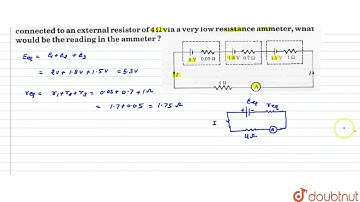 connected to an external resistor of 4 Ω via a very low resistance ammeter, what
would be the reading in the ammeter ?
Eeq = ε1+ε2+ε3
= 2V+1.8V+1.5V = 5.3V
req = r1+r2+r3 = 0.05+0.7+1Ω
= 1.7+0.05 = 1.75 Ω
2 V 0.05 Ω 1.8 V 0.7 Ω 1.5 V 1 Ω
I
4 Ω
A
Eeq req
I
4Ω
A
doubtnut